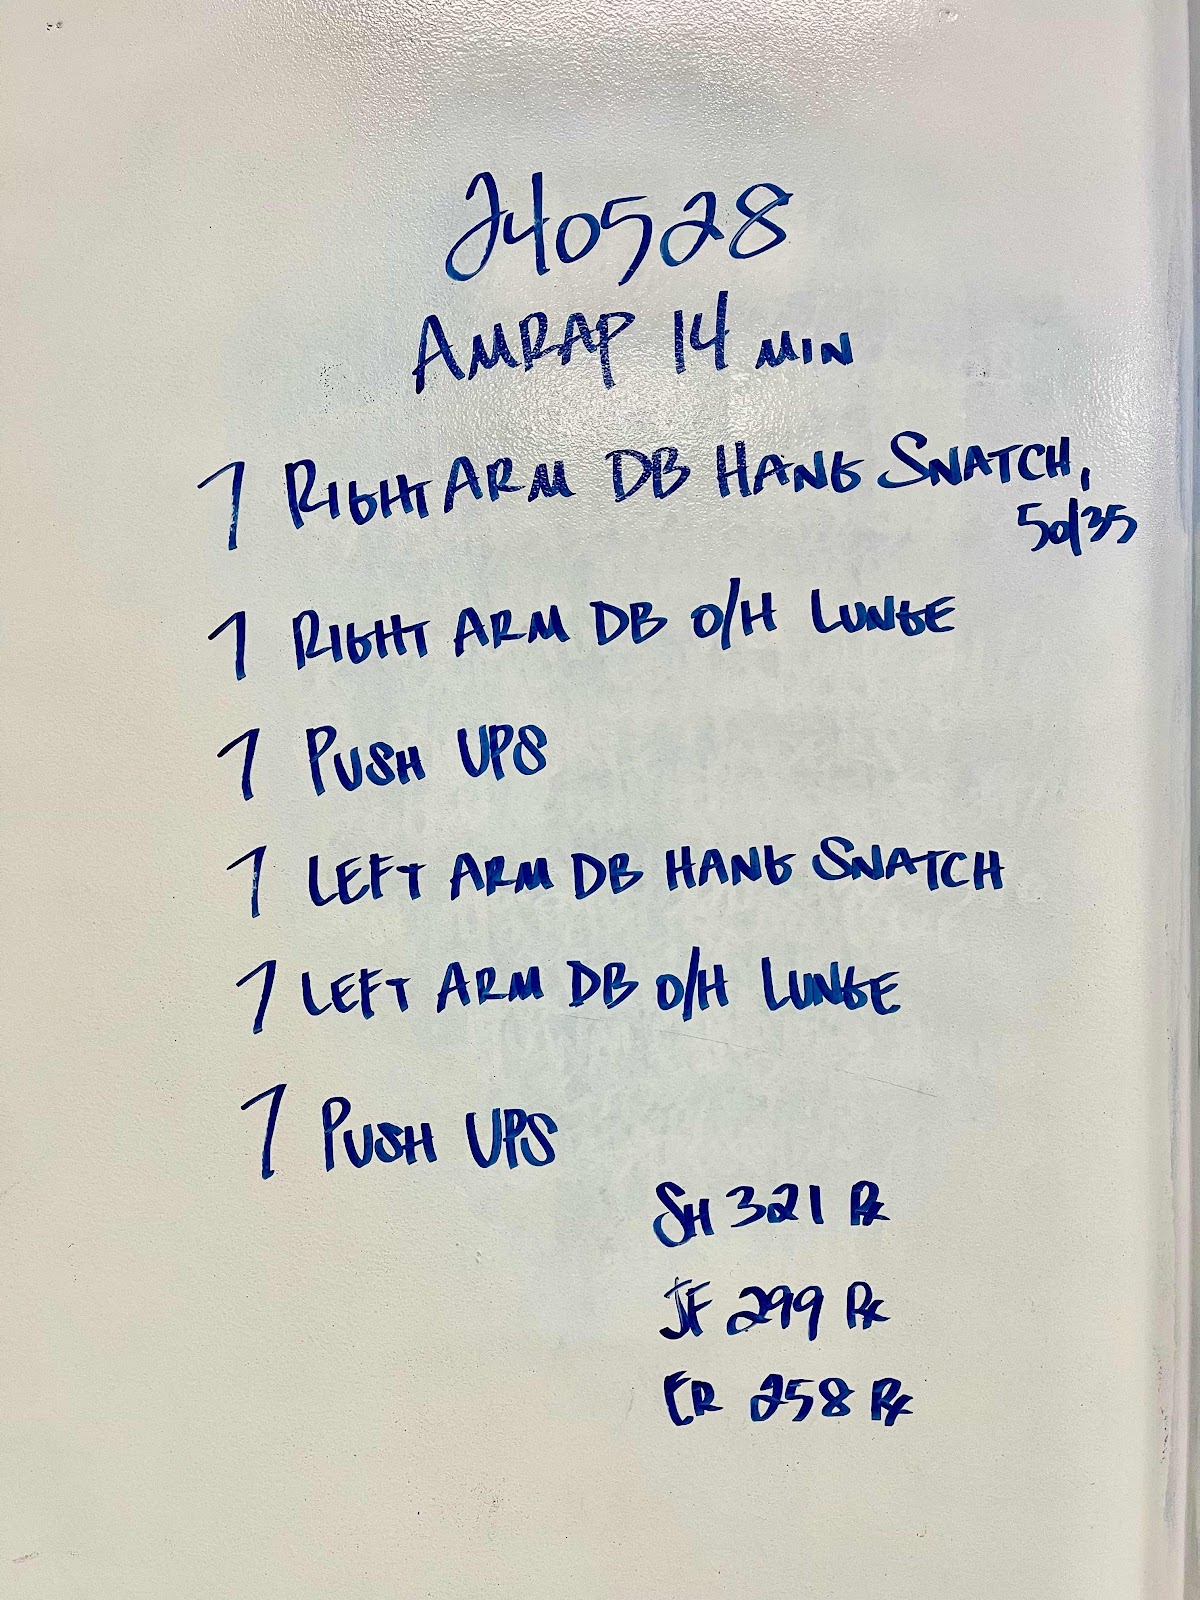 240528
AMRAP 14 MIN
7 RIGHT ARM DB HANG SNATCH,
50/35
7 RIGHT ARM DB O/H LUNGE
7 PUSH UPS
7 LEFT ARM DB HANG SNATCH
7 LEFT ARM DB O/H LUNGE
7 PUSH UPS
SH 321 Rx
JF 299 Rx
ER 258 Rx